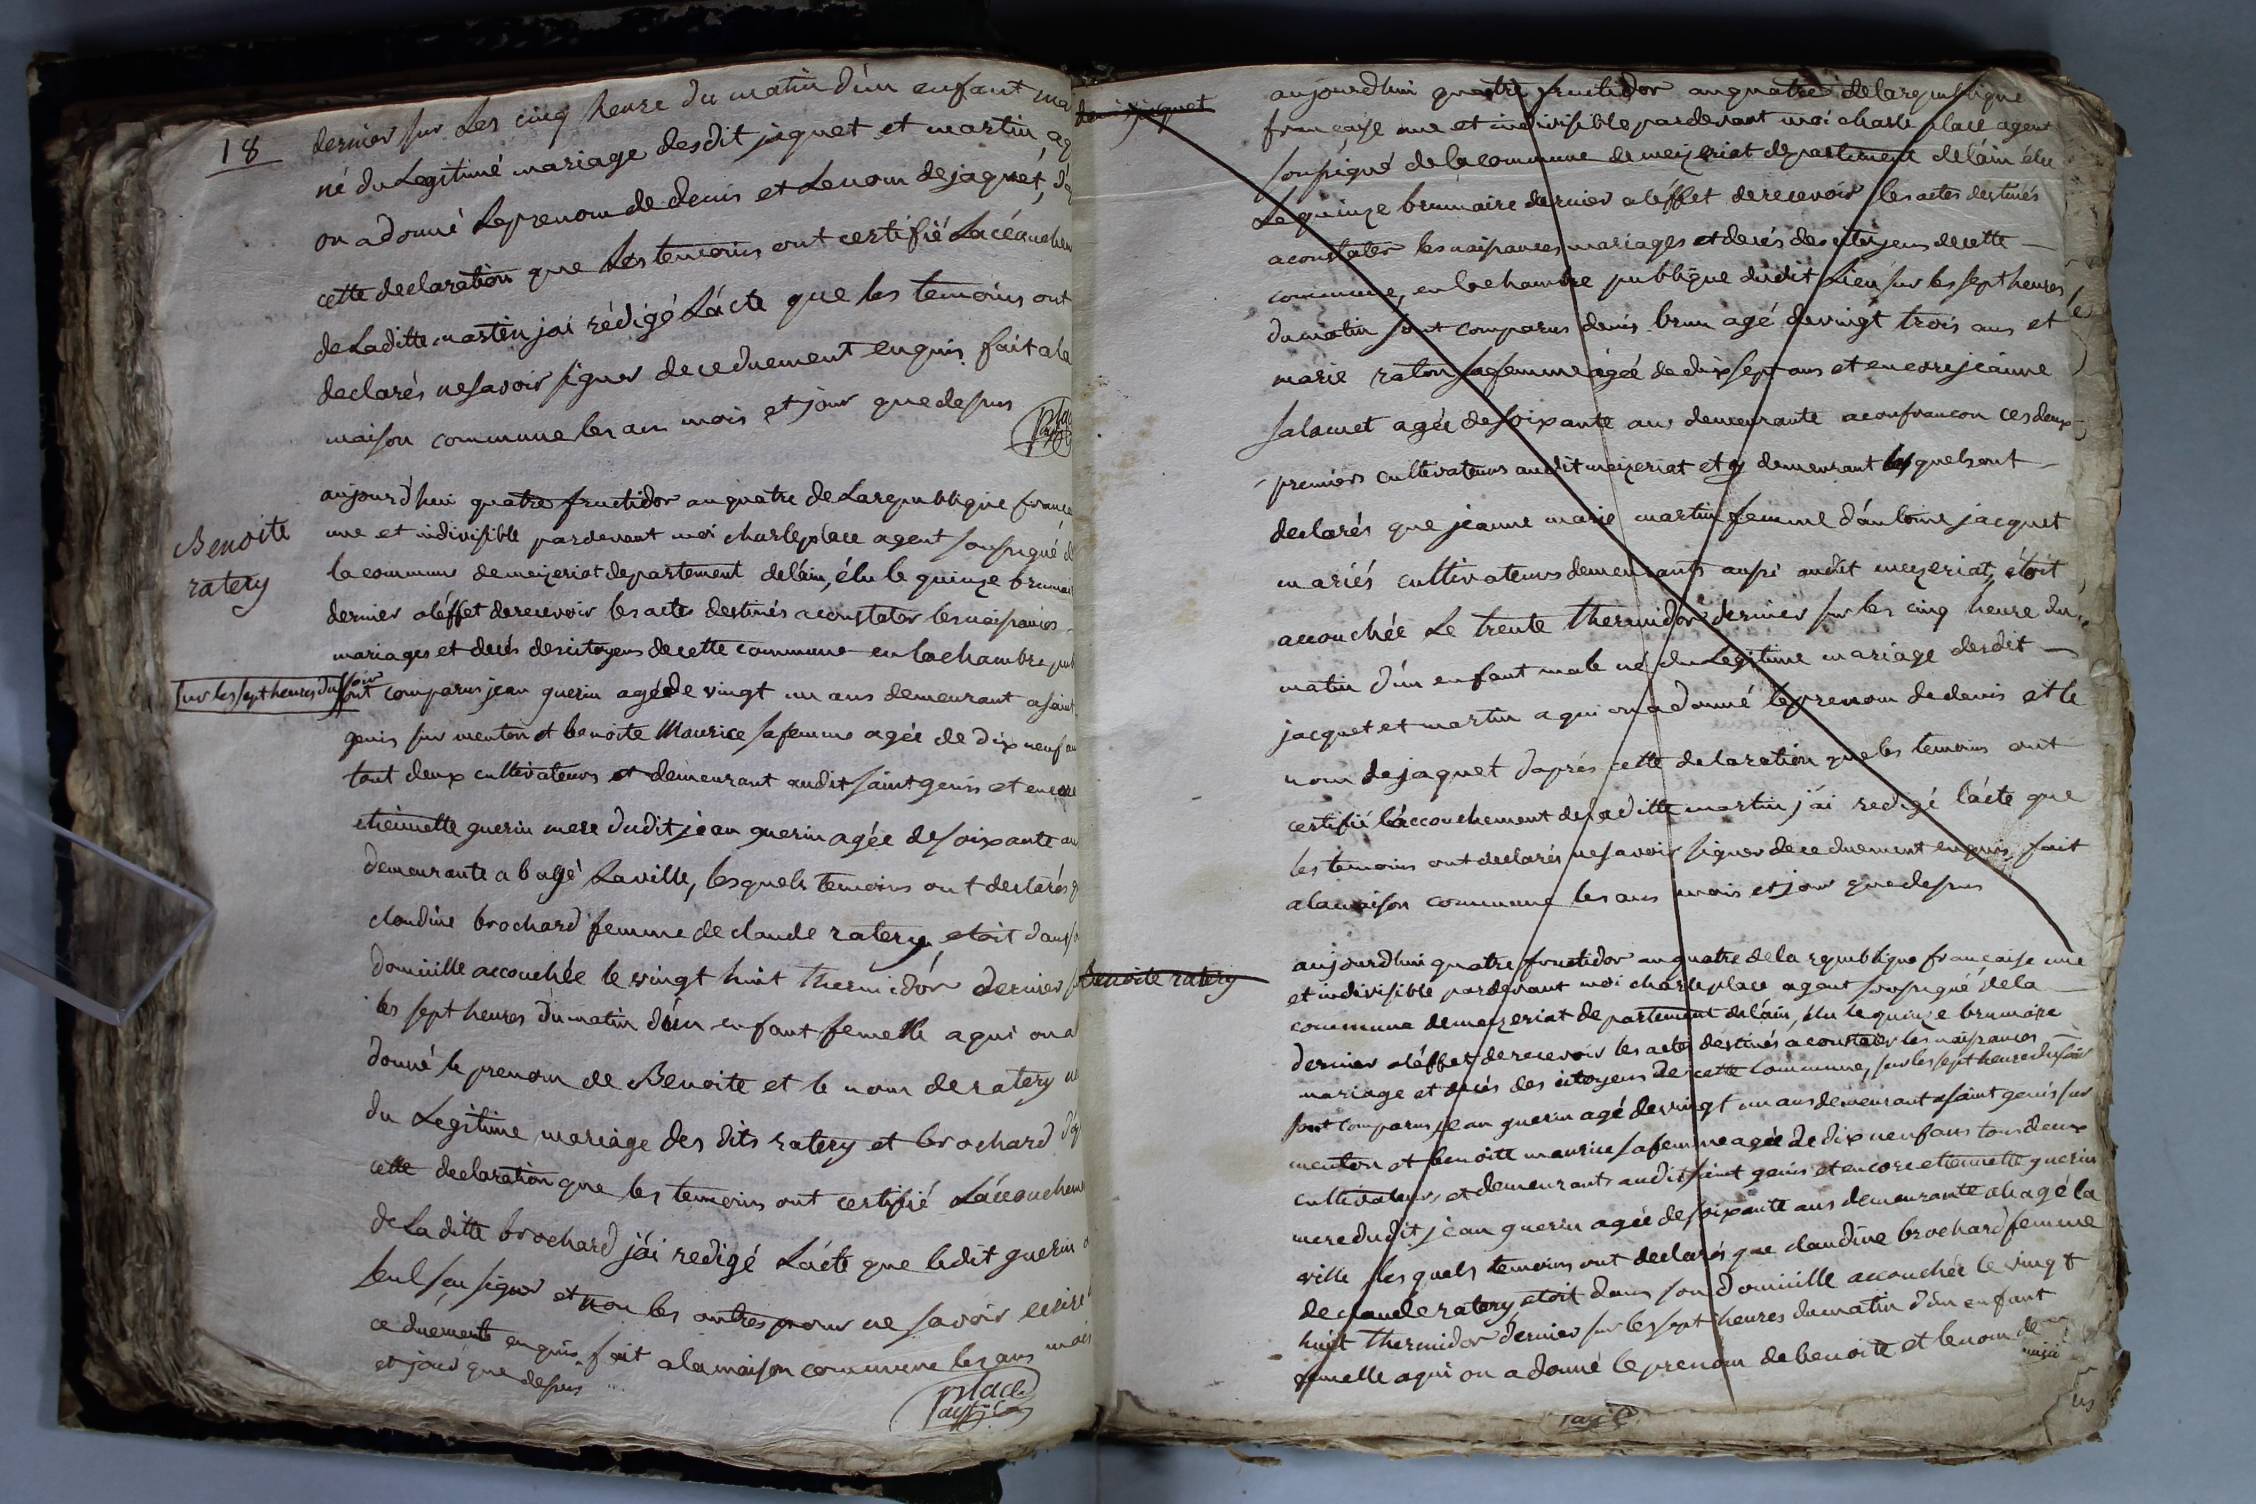 18
dernier sur Les cinq heure du matin d'un enfant ma
né du Legitimé mariage desdit jaquet et martin, aq
on a donné Leprenom de denis et Lenom dejaquet, d'a
cette declaration que Les temoins ont certifié Lacéouchem
de Laditte martin jai rédigé L'ácte que les temoins ont
declarés nesavoir signer de ceduement enquis fait a la
maison commune les an mois et jour quedessus
Benoite
ratery
aujourd'hui quatre fructidor an quatre de Larepublique france
une et indivisible pardevant moi charle place agent soussigné d
la commune demezeriat departement deláin, élu le quinze brumai
dernier aléffet derecevoir les actes destinés aconstater lesnaissances
mariages et decés descitoyens decette commune en lachambre pub
sur les sept heures du soir
sont comparus jean guerin agé de vingt un ans demeurant asaint
genis sur menton et benoite Maurice sa femme agée de dix neuf an
tout deux cultivateurs et demeurant audit saint genis et encore
etiennette guerin mere dudit jean guerin agée de soixante an
demeurante a bagé Laville, lesquels temoins ont declarés q
claudine brochard femme de claude ratery, etoit dans so
domicille accouchée le vingt huit thermidor dernier s
les sept heures du matin d'un enfant femelle a qui on a
donné le prenom de Benoite et le nom de ratery né
du Legitime mariage des dits ratery et brochard d'ap
cette declaration que les temoins ont certifié Láccouchem
de La ditte brochard j'ai redigé L'ácte que ledit guerin a
seul su signer et non les autres pour ne savoir ecrire
ce duements enquis fait a la maison commune les ans mois
et jour que dessus
place
agt
denis jaquet
aujourdhui quatre fructidor an quatre de la republique
française une et indivisible pardevant moi charle place agent
soussigné de la commune de mezeriat departement deláin élu
Le quinze brumaire dernier a léffet derecevoir les actes destinés
aconstater les naissances mariages et decés des citoyens decette
commune, en lachambre publique dudit Lieu sur les sept heures
du matin sont comparus denis brun agé de vingt trois ans et
marie raton sa femme agée de dix sept ans et encore jeanne
salomet agée de soixante ans demeurante aconfrancon ces deux
premiers cultivateurs audit mezeriat et y demeurant lesquels ont
declarés que jeanne marie martin femme d'antoine jacquet
mariés cultivateurs demeurants aussi audit mezeriat, étoit
accouchée Le trente thermidor dernier sur les cinq heure du
matin d'un enfant male né du Legitime mariage desdit
jacquet et martin a qui on a donné le prenom de denis et le
nom de jaquet daprés cette declaration que les temoins ont
certifié láccouchement de laditte martin j'ai redigé lácte que
les temoins ont declarés nesavoir signer de ce duement enquis, fait
alamaison commune les ans mois et jour quedessus
Benoite ratery
aujourdhui quatre fructidor an quatre de la republique française une
et indivisible pardevant moi charle place agent soussigné de la
commune demezeriat departement deláin, élu le quinze brumaire
dernier aléffet de recevoir les actes destinés aconstater les naissances
mariage et decés des citoyens de cette commune, sur les sept heure du soir
sont comparus jean guerin agé devingt un ans demeurant asaint genis sur
menton et benoite maurice sa femme agée de dix neuf ans tous deux
cultivateurs et demeurants audit saint genis et encore etiennette guerin
mere dudit jean guerin agée de soixante ans demeurante abagé la
ville les quels temoins ont declarés que claudine brochard femme
de claude ratery etoit dans son domicille accouchée le vingt
huit thermidor dernier sur les sept heures du matin d'un enfant
femelle aqui on a donné le prenom debenoite et lenom de